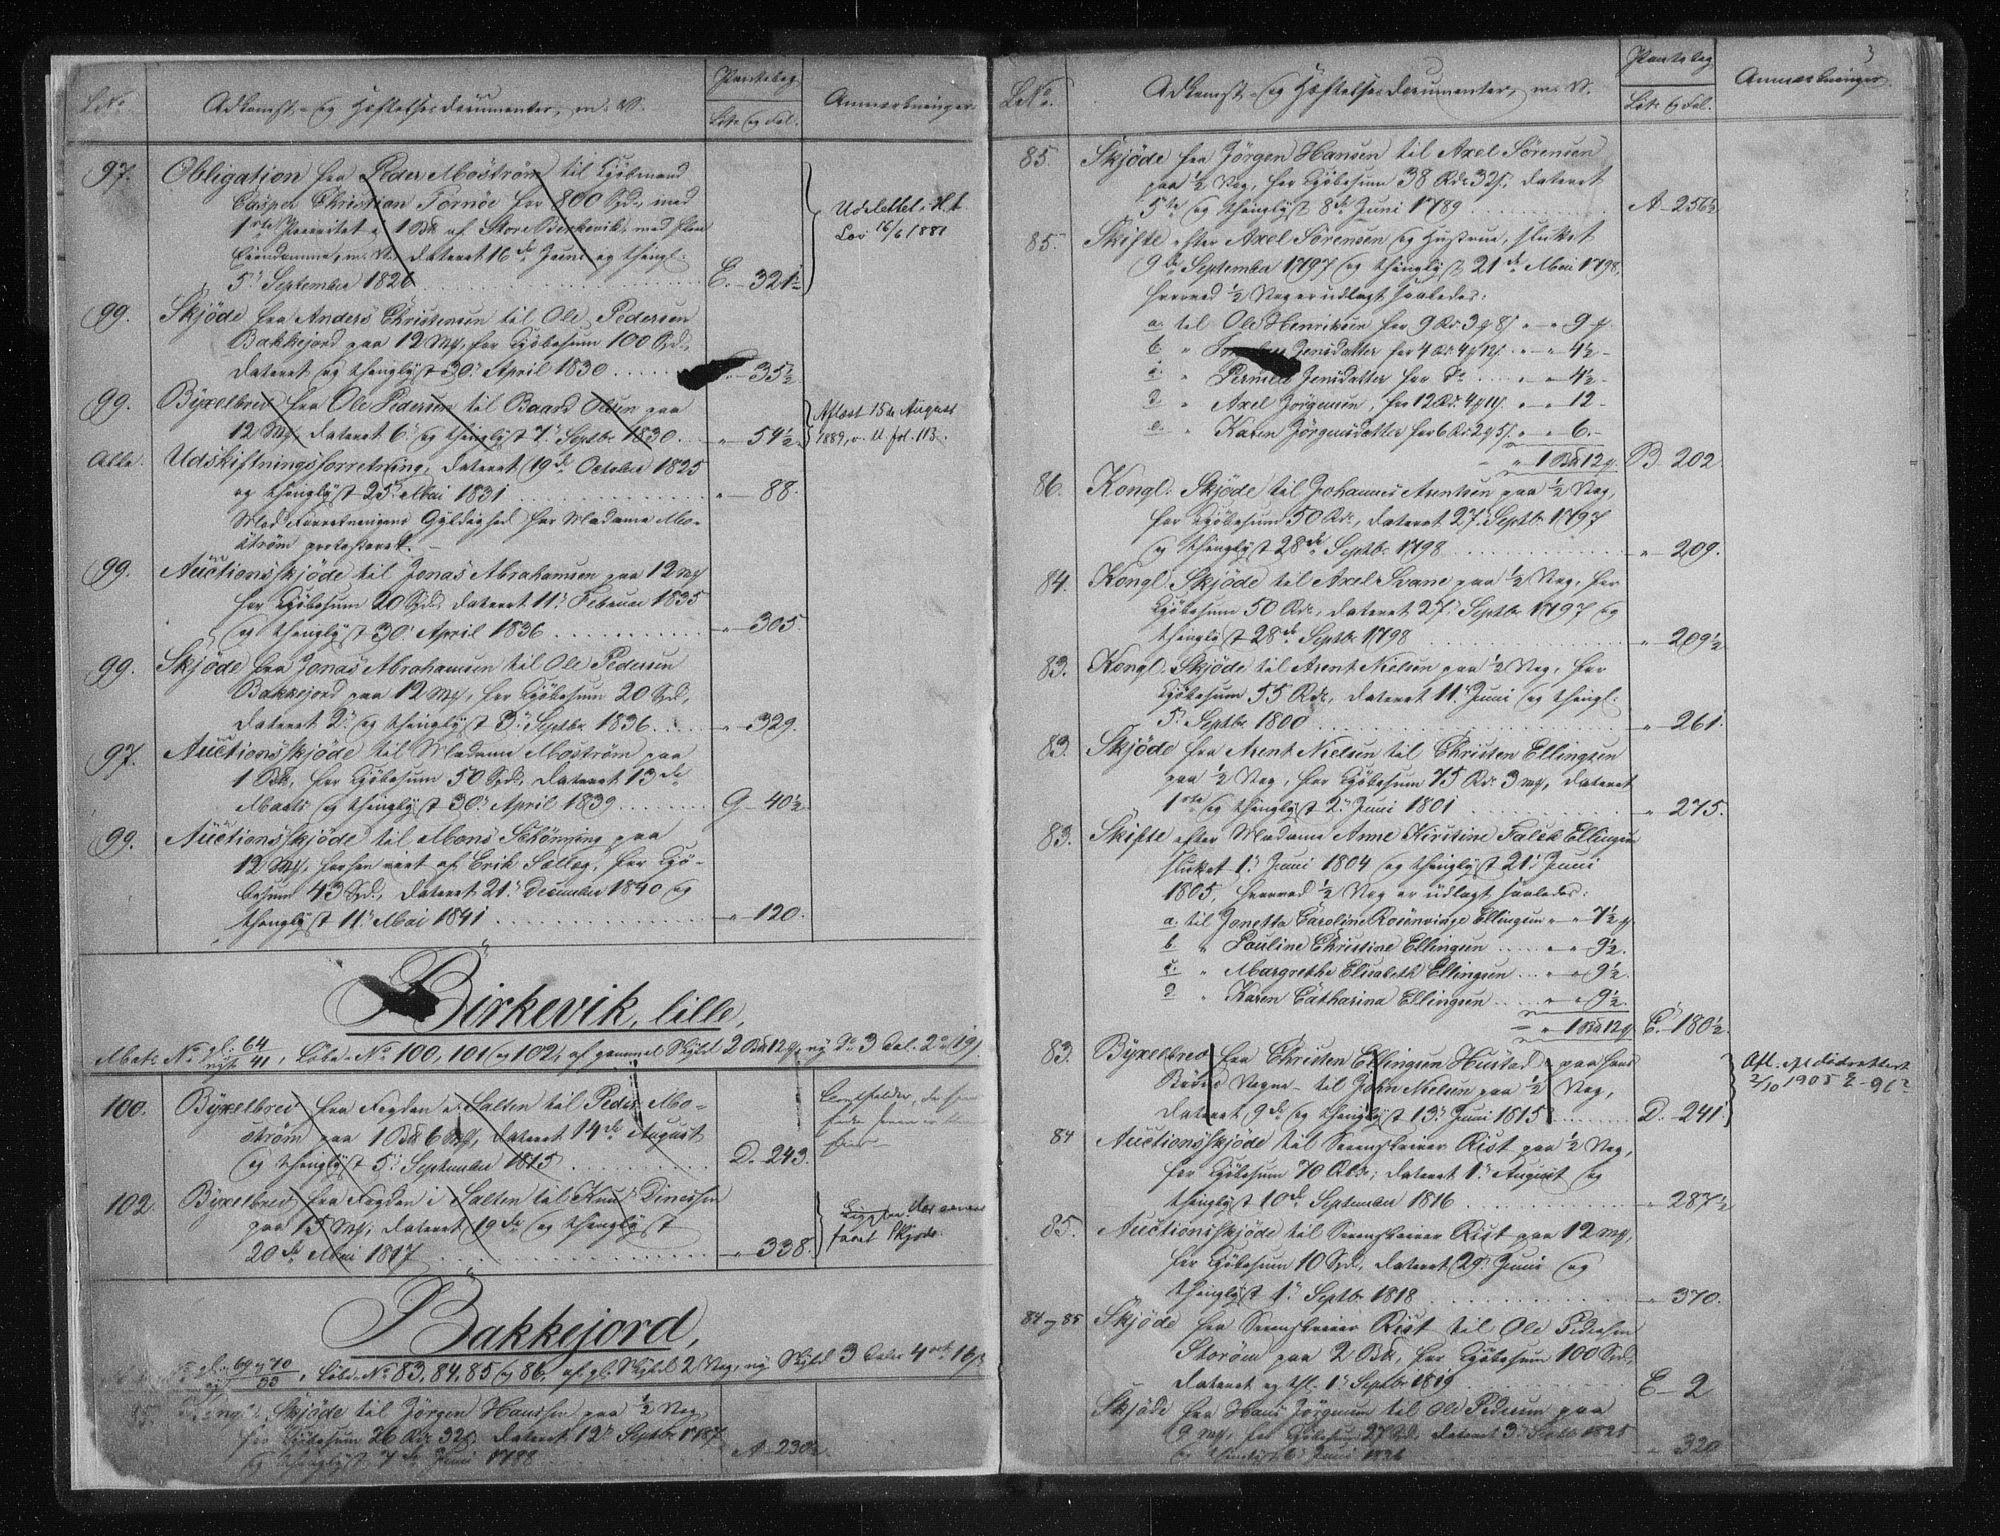 L.No.
Adkomst- og Hæftelsesdocumenter, m. V.
Pantebog
Litr. og Fol.
Anmærkninger.
97. Obligation fra Peder Moström til Kjöbmand
Casper Christian Fornöe for 800 Spd., med
1ste Prioritet i 1 Bd af Store Birkevik, med flere
Eiendomme, m. V. dateret 16de Juni og thingl.
5te September 1826 E. 321½
Udslettet i H. t.
Lov 16/6 1881
99. Skjöde fra Anders Christensen til Ole Pedersen
Bakkejord paa 12 Mk, for Kjöbesum 100 Spd.,
dateret og thinglyst 30. April 1830 35½
99. Byxelbrev fra Ole Pedersen til Baard Olsen paa
12 Mk, dateret 6. og thinglyst 7. Septbr. 1830. " 54½
Aflæst 15de August
1889, v. U. fol. 113.
Alle. Udskiftningsforretning, dateret 19de October 1825
og thinglyst 25. Mai 1831 " 88.
Med Forretningens Gyldighed for Madame Mo-
ström protesteret.
99. Auctionsskjöde til Jonas Abrahamsen paa 12 Mk
for Kjöbesum 20 Spd. dateret 11. Februar 1835
og thinglyst 30. April 1836 " 305.
99. Skjöde fra Jonas Abrahamsen til Ole Pedersen
Bakkejord paa 12 Mk, for Kjöbesum 20 Spd.,
dateret 2. og thinglyst 3. Septbr. 1836 " 329.
97. Auctionsskjöde til Madame Moström paa
1 Bd., for Kjöbesum 50 Spd., dateret 13de
Marts og thinglyst 30. April 1839 G. 40½
99. Auctionsskjöde til Mons Schönning paa
12 Mk, forhen eiet af Erik Solløg, for Kjö-
besum 43 Spd., dateret 21. December 1840 og
thinglyst 11. Mai 1841 " 120.
Birkevik, lille,
Matr. No gl. 64
nyt 41, Löbe-No 100, 101 og 102, af gammel Skyld 2 Bd 12 Mk, ny Do 3 Dal. 2 19
100. Byxelbrev fra Fogden i Salten til Peder Mo-
ström paa 1 Bd 6 Mk, dateret 14de August
og thinglyst 5. September 1815 D. 243.
102. Byxelbrev fra Fogden i Salten til Knud Dinessen
paa 15 Mk, dateret 19de og thinglyst
20de Mai 1817 " 338.
faaet Skjöde.
Bakkejord,
gl. 69 og 70
33, Löbe-No 83, 84, 85 og 86, af gl. Skyld 2 Vog, ny Skyld 3 Daler 4 ort 16
85. Kongl. Skjöde til Jörgen Hanssen paa ½ Vog,
for Kjöbesum 26 Rdr. 32 s., dateret 12. Septbr. 1787
og thinglyst 7de Juni 1788 A 230½
3
L.No.
Adkomst- og Hæftelsesdocumenter, m. V.
Pantebog
Litr. og Fol.
Anmærkninger.
85. Skjöde fra Jörgen Hansen til Axel Sörensen
paa ½ Vog, for Kjöbesum 38 Rdr 32 s., dateret
5te og thinglyst 8de Juni 1789 A 256½
85. Skifte efter Axel Sörensen og Hustrue, sluttet
9de September 1797 og thinglyst 21de Mai 1798,
hvorved ½ Vog er udlagt saaledes:
a. til Ole Henriksen for 9 Rd. 3 8 s. " " 9
b. " Jensdatter for 4 Rd. 4 12 s. " " 4½
c. " Pernele Jensdatter for Do " " 4½
d. " Axel Jörgensen, for 12 Rd. 4 " " 12
e. " Karen Jörgensdatter for 6 Rd. 2 5 s. " " 6.
" 1 Bd 12 B 202.
86. Kongl. Skjöde til Johannes Arentsen paa ½ Vog,
for Kjöbesum 50 Rd., dateret 27. Septbr 1797
og thinglyst 28de Septbr. 1798 " 209.
84. Kongl. Skjöde til Axel Svane paa ½ Vog, for
Kjöbesum 50 Rd., dateret 27. Septbr 1797 og
thinglyst 28de Septbr. 1798 " 209½
83. Kongl. Skjöde til Arent Nielsen paa ½ Vog, for
Kjöbesum 55 Rdr., dateret 11. Juni og thingl.
5. Septbr. 1800 " 261.
83. Skjöde fra Arent Nielsen til Christen Ellingsen
paa ½ Vog, for Kjöbesum 75 Rdr. 3 Mk, dateret
1ste og thinglyst 2. Juni 1801 " 275.
83. Skifte efter Madame Anne Kirstine Falck Ellingsen
sluttet 1. Juni 1804 og thinglyst 21. Juni
1805, hvorved ½ Vog er udlagt saaledes:
a. til Janetta Caroline Rosenvinge Ellingsen " " 7½
b. " Pauline Christine Ellingsen " " 9½.
c. " Margrethe Elisabeth Ellingsen " " 9½.
d. " Karen Catharina Ellingsen " " 9½.
" 1 Bd 12 C. 180½
83. Byxelbrev fra Christen Ellingsen Hustad paa hans
Börns Vegne til John Nielsen paa ½ Vog,
dateret 9de og thinglyst 13. Juni 1815 D. 241.
Afl. efl. didrettet
2/10 1905
84 Auctionsskjöde til Sorenskriver Rist paa ½ Vog,
for Kjöbesum 70 Rbd., dateret 1. August og
thinglyst 10de September 1816 " 287½
85. Auctionsskjöde til Sorenskriver Rist paa 12 Mk,
for Kjöbesum 10 Spd., dateret 29. Juni og
thinglyst 1. Septbr. 1818 " 370.
84 og 85 Skjöde fra Sorenskriver Rist til Ole Pedersen
Storöm paa 2 Bd., for Kjöbesum 100 Spd.,
dateret og thl. 1. Septbr 1819 E 2
Skjöde fra Hans Jörgensen til Ole Pedersen paa
9 Mk, for Kjöbesum 27 Spd., dateret 3. Septbr 1825
og thinglyst 6. Juni 1826 " 320